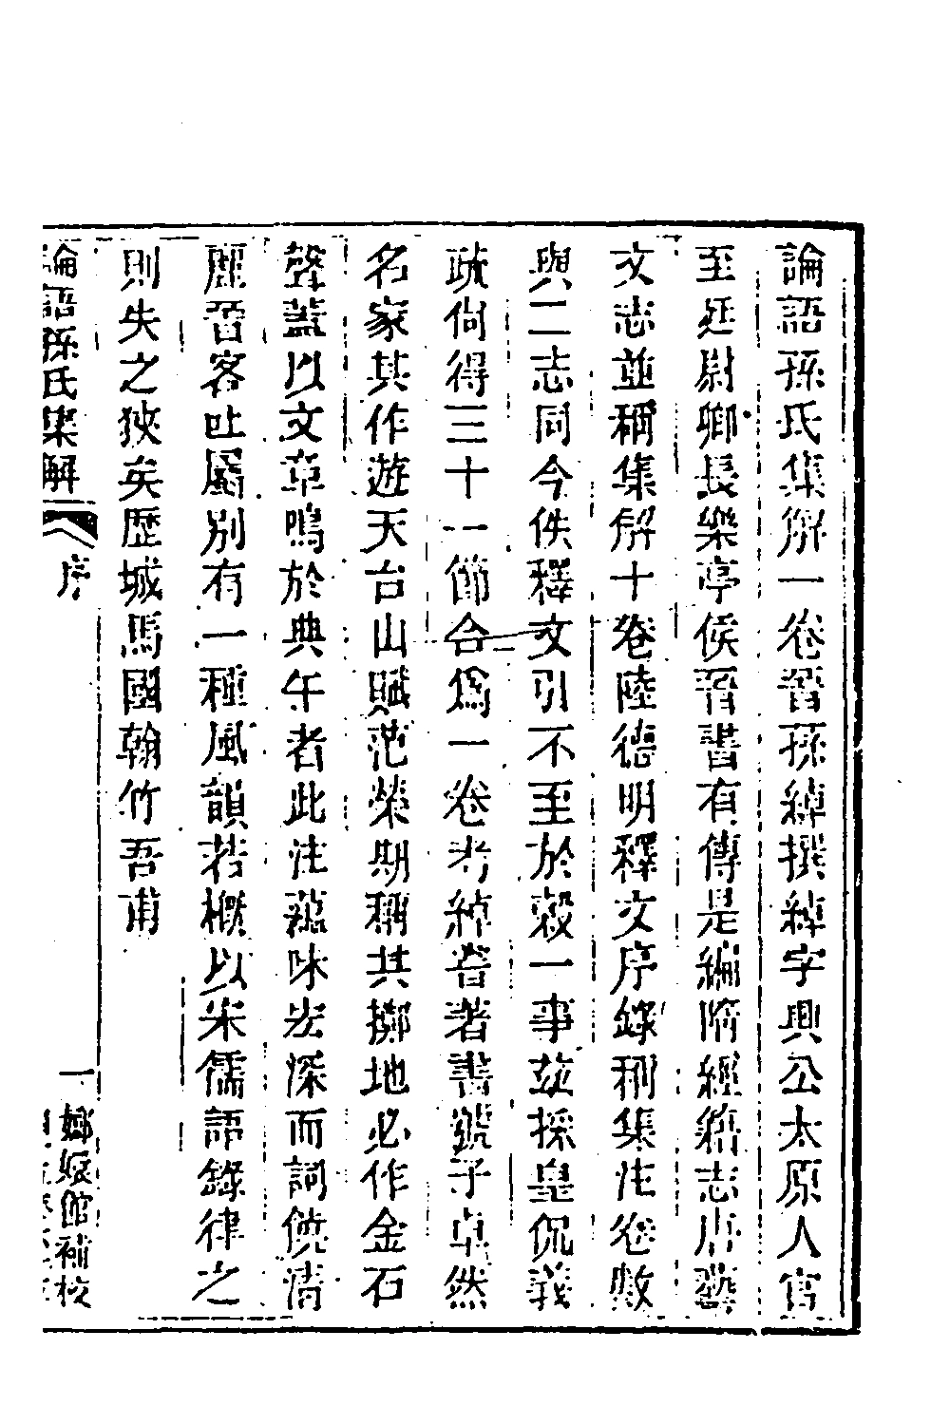 論語孫氏集解一卷晉孫綽撰綽字興公太原人官
至廷尉卿長樂亭侯晉書有傳是編隋經籍志唐藝
文志並稱集解十卷陸德明釋文序錄稱集注卷數
與二志同今佚釋文引不至於穀一事茲採皇侃義
疏尙得三十一節合爲一卷考綽嘗著書號子卓然
名家其作遊天台山賦范榮期稱其擲地必作金石
聲蓋以文章鳴於典午者此注蘊味宏深而詞饒清
麗晉客吐屬別有一種風韻若槪以宋儒語錄律之
則失之狹矣歷城馬國翰竹吾甫
論語孫氏集解
序
一
嫏嬛館補校